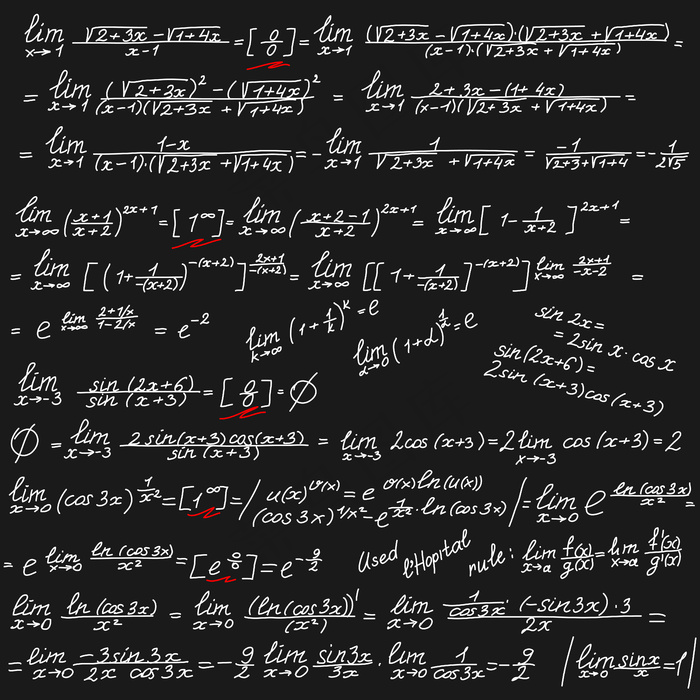 lim x→1 (√2+3x − √1+4x)/(x−1) = [0/0] = lim x→1 ((√2+3x − √1+4x)·(√2+3x + √1+4x))/((x−1)·(√2+3x + √1+4x)) =
= lim x→1 ((√2+3x)² − (√1+4x)²)/((x−1)(√2+3x + √1+4x)) = lim x→1 (2+3x−(1+4x))/((x−1)(√2+3x + √1+4x)) =
= lim x→1 (1−x)/((x−1)·(√2+3x + √1+4x)) = − lim x→1 1/(√2+3x + √1+4x) = −1/(√2+3+√1+4) = −1/(2√5)
lim x→∞ ((x+1)/(x+2))^(2x+1) = [1^∞] = lim x→∞ ((x+2−1)/(x+2))^(2x+1) = lim x→∞ [1 − 1/(x+2)]^(2x+1) =
= lim x→∞ [(1+1/(−(x+2)))^(−(x+2))]^((2x+1)/(−(x+2))) = lim x→∞ [[1+1/(−(x+2))]^(−(x+2))]^(lim x→∞ (2x+1)/(−x−2)) =
= e^(lim x→∞ (2+1/x)/(−1−2/x)) = e^(−2)
lim k→∞ (1+1/k)^k = e
lim α→0 (1+α)^(1/α) = e
sin 2x =
= 2sin x · cos x
sin(2x+6) =
2sin(x+3)cos(x+3)
lim x→−3 sin(2x+6)/sin(x+3) = [0/0] = ∅
∅ = lim x→−3 (2sin(x+3)cos(x+3))/sin(x+3) = lim x→−3 2cos(x+3) = 2 lim x→−3 cos(x+3) = 2
lim x→0 (cos3x)^(1/x²) = [1^∞] = / u(x)^(v(x)) = e^(v(x)ln(u(x))) (cos3x)^(1/x²) = e^(1/x² · ln(cos3x)) / = lim x→0 e^(ln(cos3x)/x²) =
= e^(lim x→0 ln(cos3x)/x²) = [e^(0/0)] = e^(−9/2)
Used l'Hopital rule: lim x→a f(x)/g(x) = lim x→a f'(x)/g'(x)
lim x→0 ln(cos3x)/x² = lim x→0 (ln(cos3x))'/(x²)' = lim x→0 (1/cos3x · (−sin3x)·3)/2x =
= lim x→0 (−3sin3x)/(2x cos3x) = −9/2 lim x→0 sin3x/3x · lim x→0 1/cos3x = −9/2 | lim x→0 sinx/x = 1 |